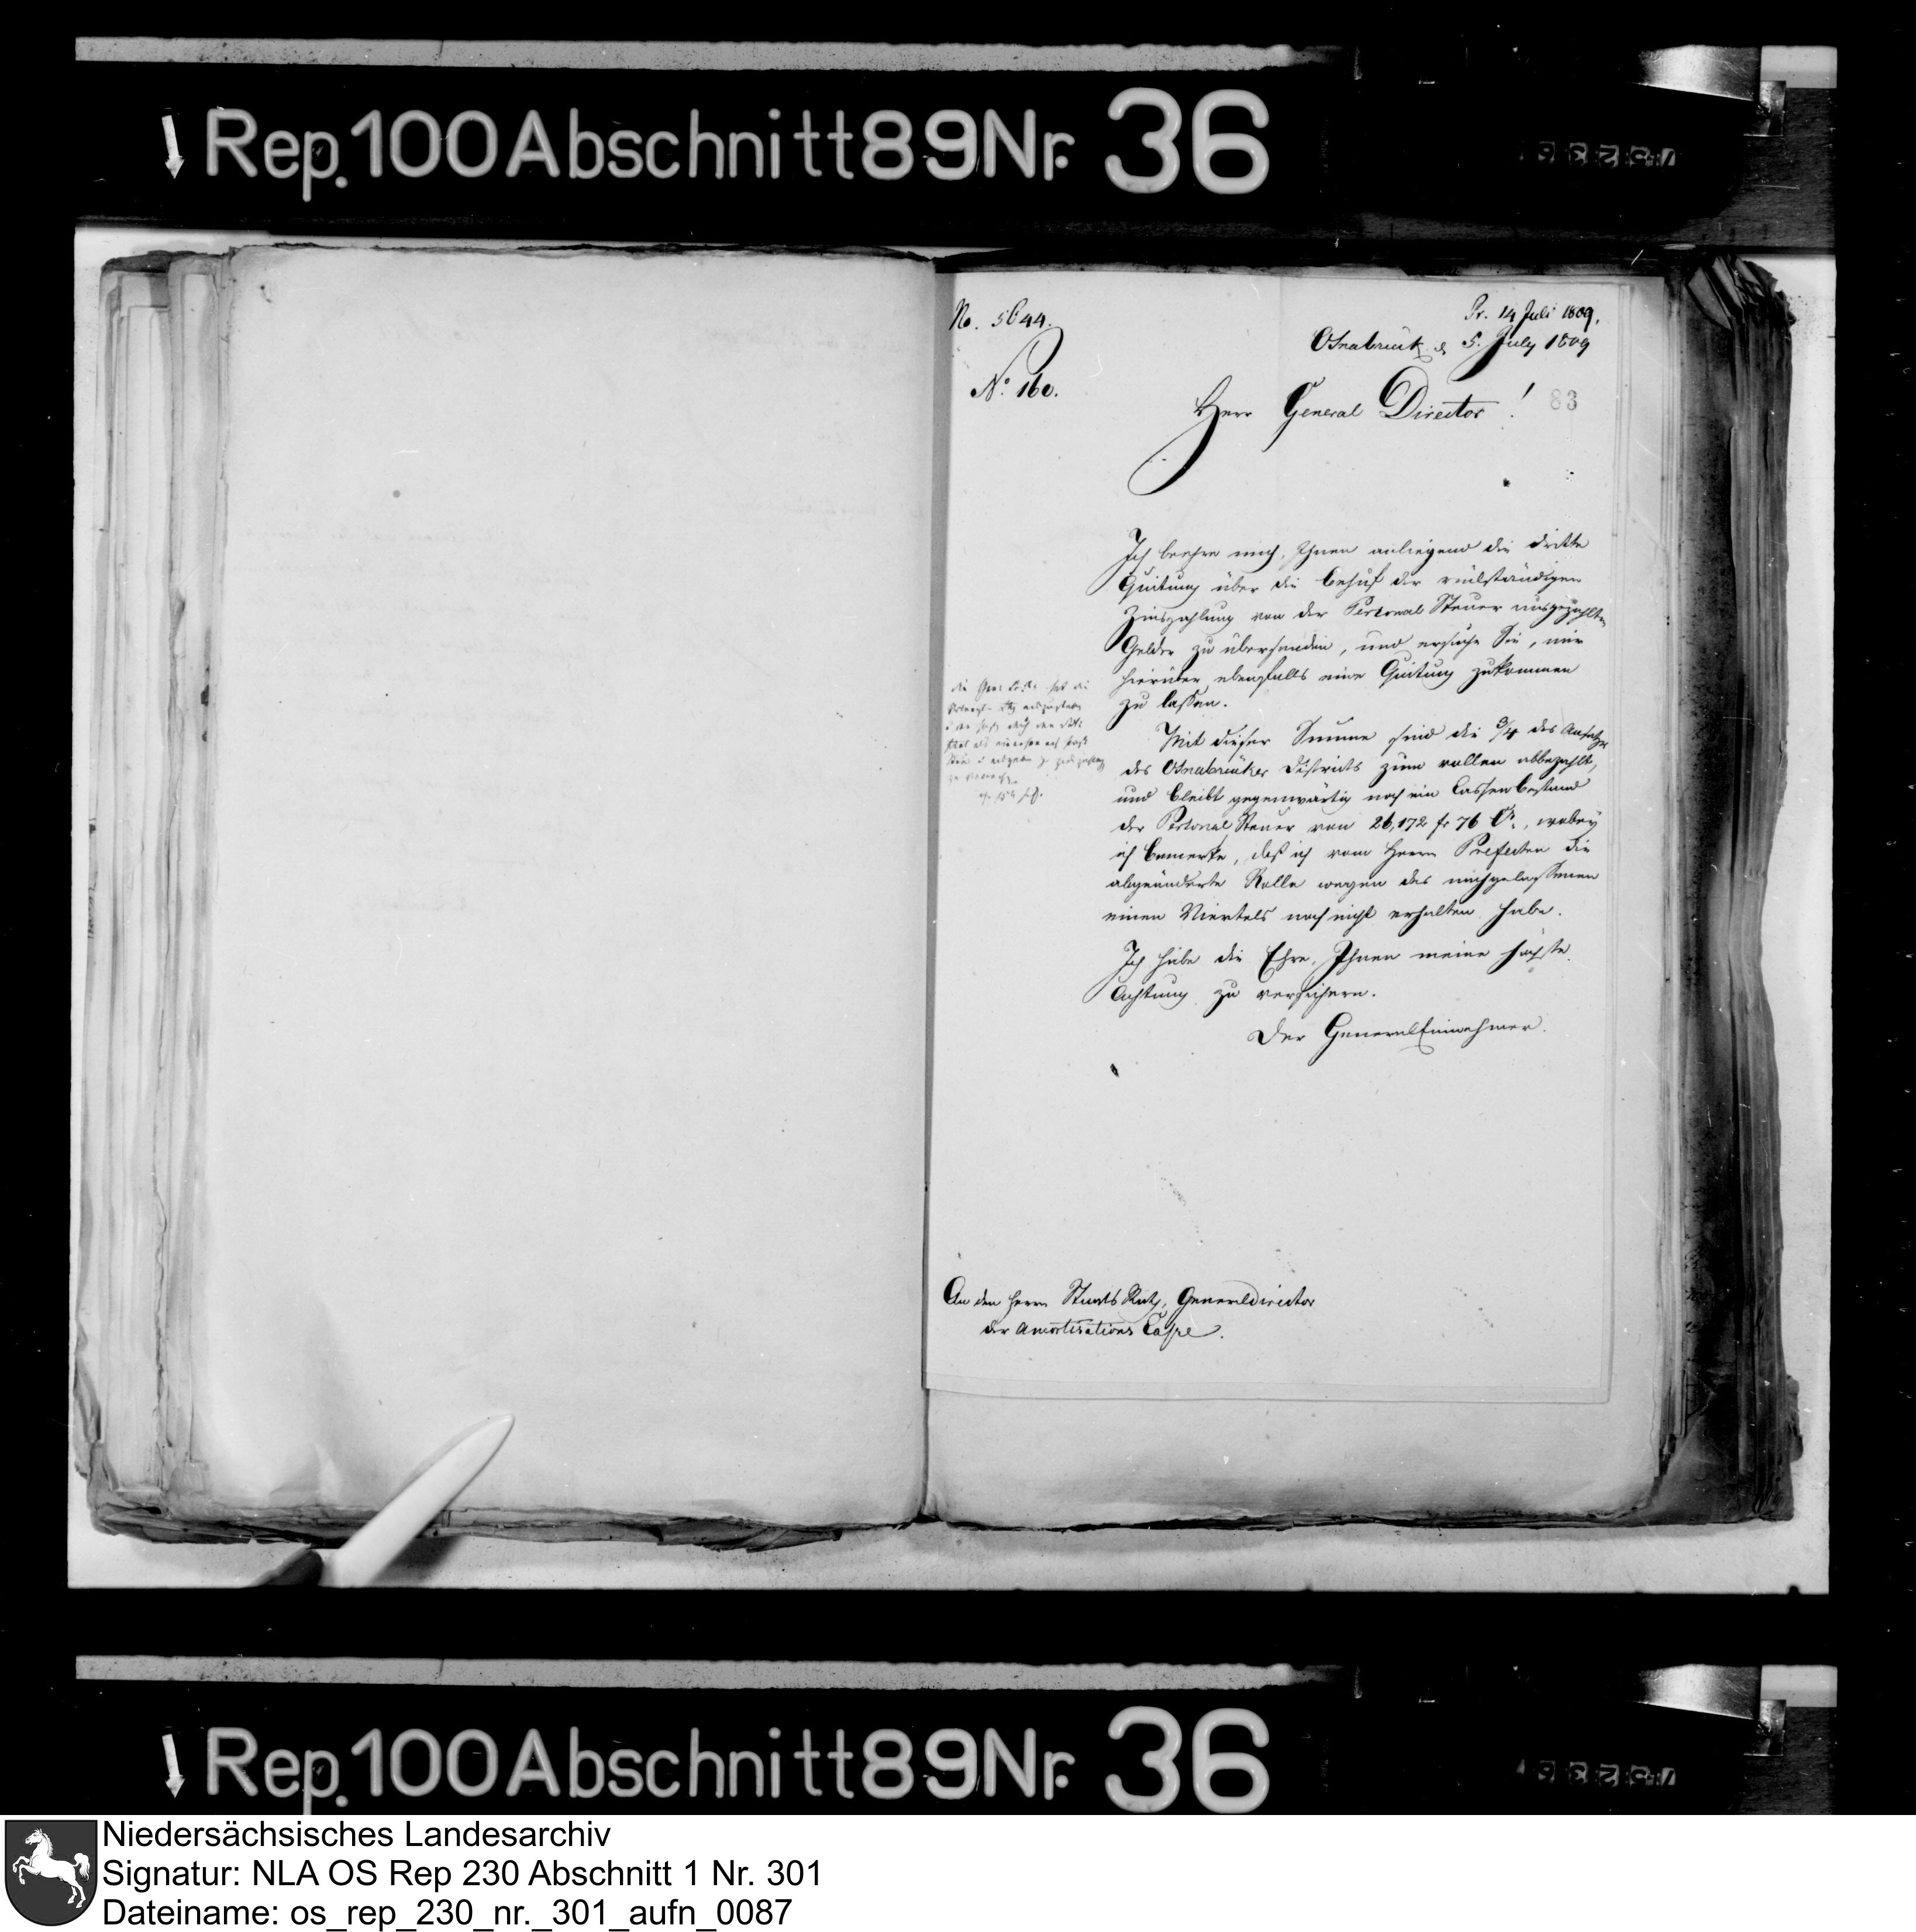 Rep.100Abschnitt89Nr. 36
No. 5644.
Pr. 14 Juli 1809.
Osnabrück d 5. July 1809
No. 160.
Herr General Director!
83
Ich beehre mich, Ihnen anliegend die dritte
Quitung über die behuf der rükständigen
Zinszahlung von der Personal Steuer ausgezahlten
Gelder zu übersenden, und ersuche Sie, mir
hierüber ebenfalls eine Quitung zukommen
zu lassen.
Mit dieser Summe sind die 3/4 des Ansatzes
des Osnabrücker Districts zum vollen abbezahlt,
und bleibt gegenwärtig noch ein Cassenbestand
der Personal Steuer von 26,172 fr 76 C., wobey
ich bemerke, daß ich vom Herrn Prefecten die
abgeänderte Rolle wegen des nachgelassenen
einen Viertels noch nicht erhalten habe.
Ich habe die Ehre, Ihnen meine höchste
Achtung zu versichern.
Der GeneralEinnehmer.
An den Herrn Staats Rath, Generaldirector
der Amortisations Casse.
Rep.100Abschnitt89Nr. 36
Niedersächsisches Landesarchiv
Signatur: NLA OS Rep 230 Abschnitt 1 Nr. 301
Dateiname: os_rep_230_nr._301_aufn_0087